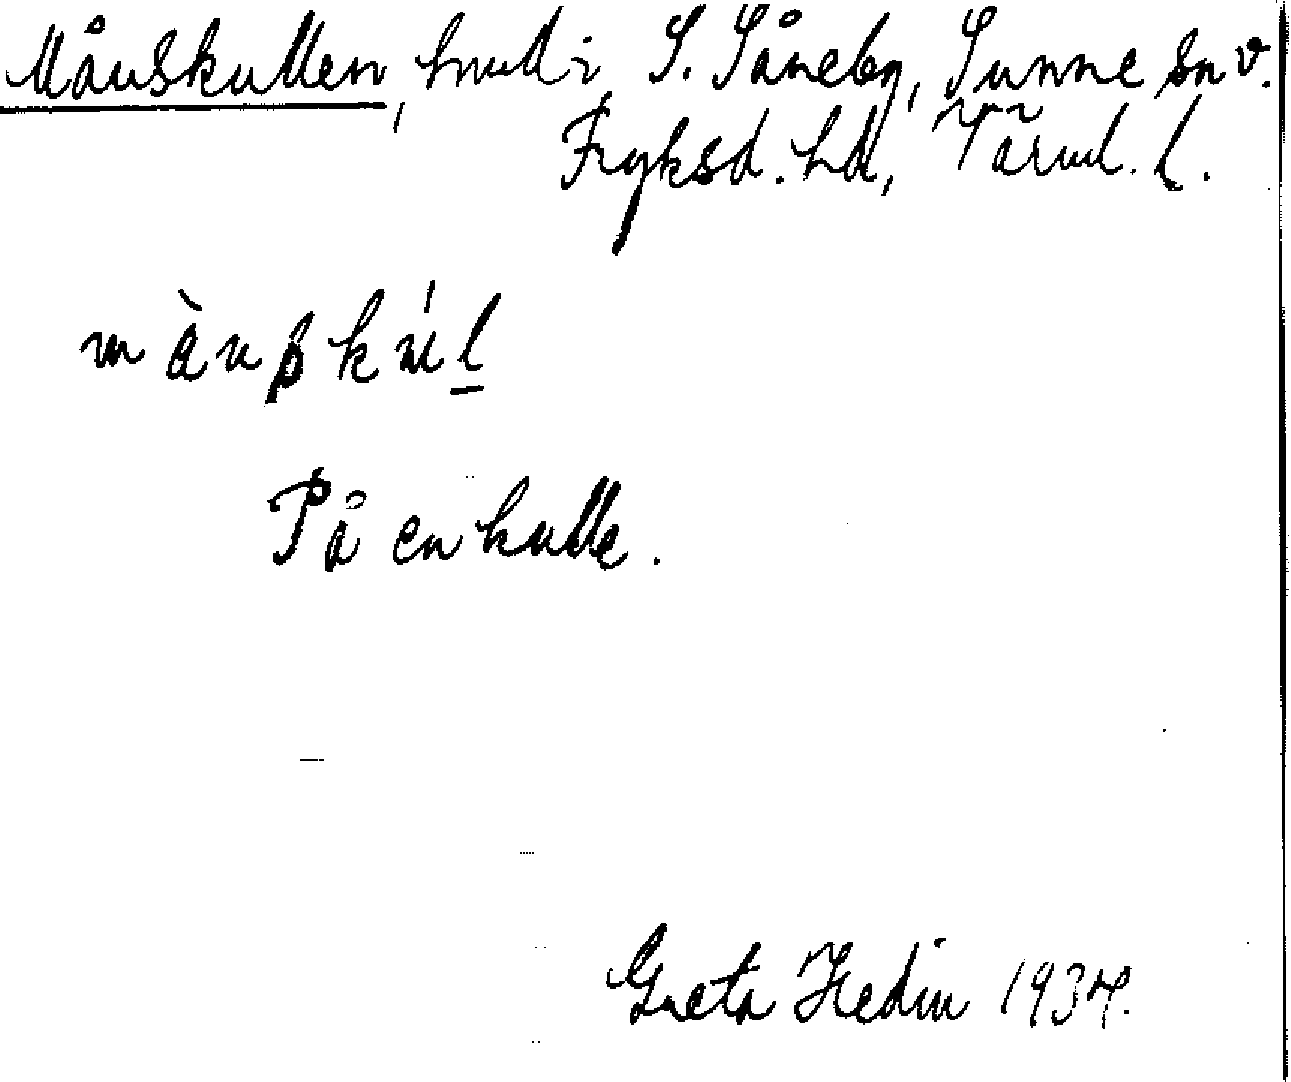 Månskullen, hmd i S. Såneby, Sunne sn v.
Fryksd. hd, Värml. l.
På en kulle.
Greta Hedin 1934.